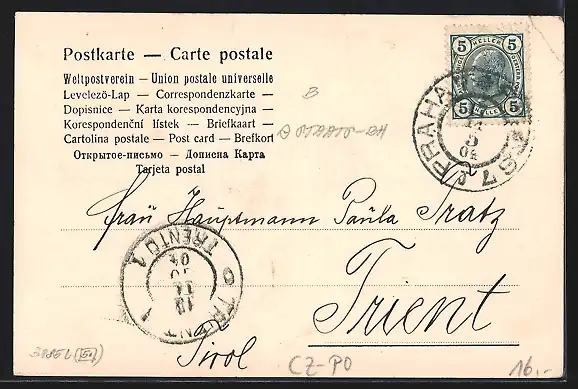 Postkarte — Carte postale
Weltpostverein — Union postale universelle
Levelező-Lap — Correspondenzkarte —
Dopisnice — Karta korespondencyjna —
Korespondenční lístek — Briefkaart —
Cartolina postale — Post card — Brefkort
Открытое-письмо — Дописна Карта
Tarjeta postal
5 HELLER 5
5 HELLER 5
PRAHA
B
Frau Hauptmann Paula Tratz
Trient
Tirol
TRENTO 1
TRIENT 1
CZ-PO
16.-